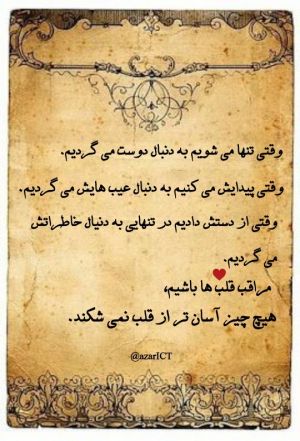 وقتی تنها می شویم به دنبال دوست می گردیم.
وقتی پیدایش می کنیم به دنبال عیب هایش می گردیم.
وقتی از دستش دادیم در تنهایی به دنبال خاطراتش
می گردیم.
مراقب قلب ها باشیم،
هیچ چیز آسان تر از قلب نمی شکند.
@azarICT